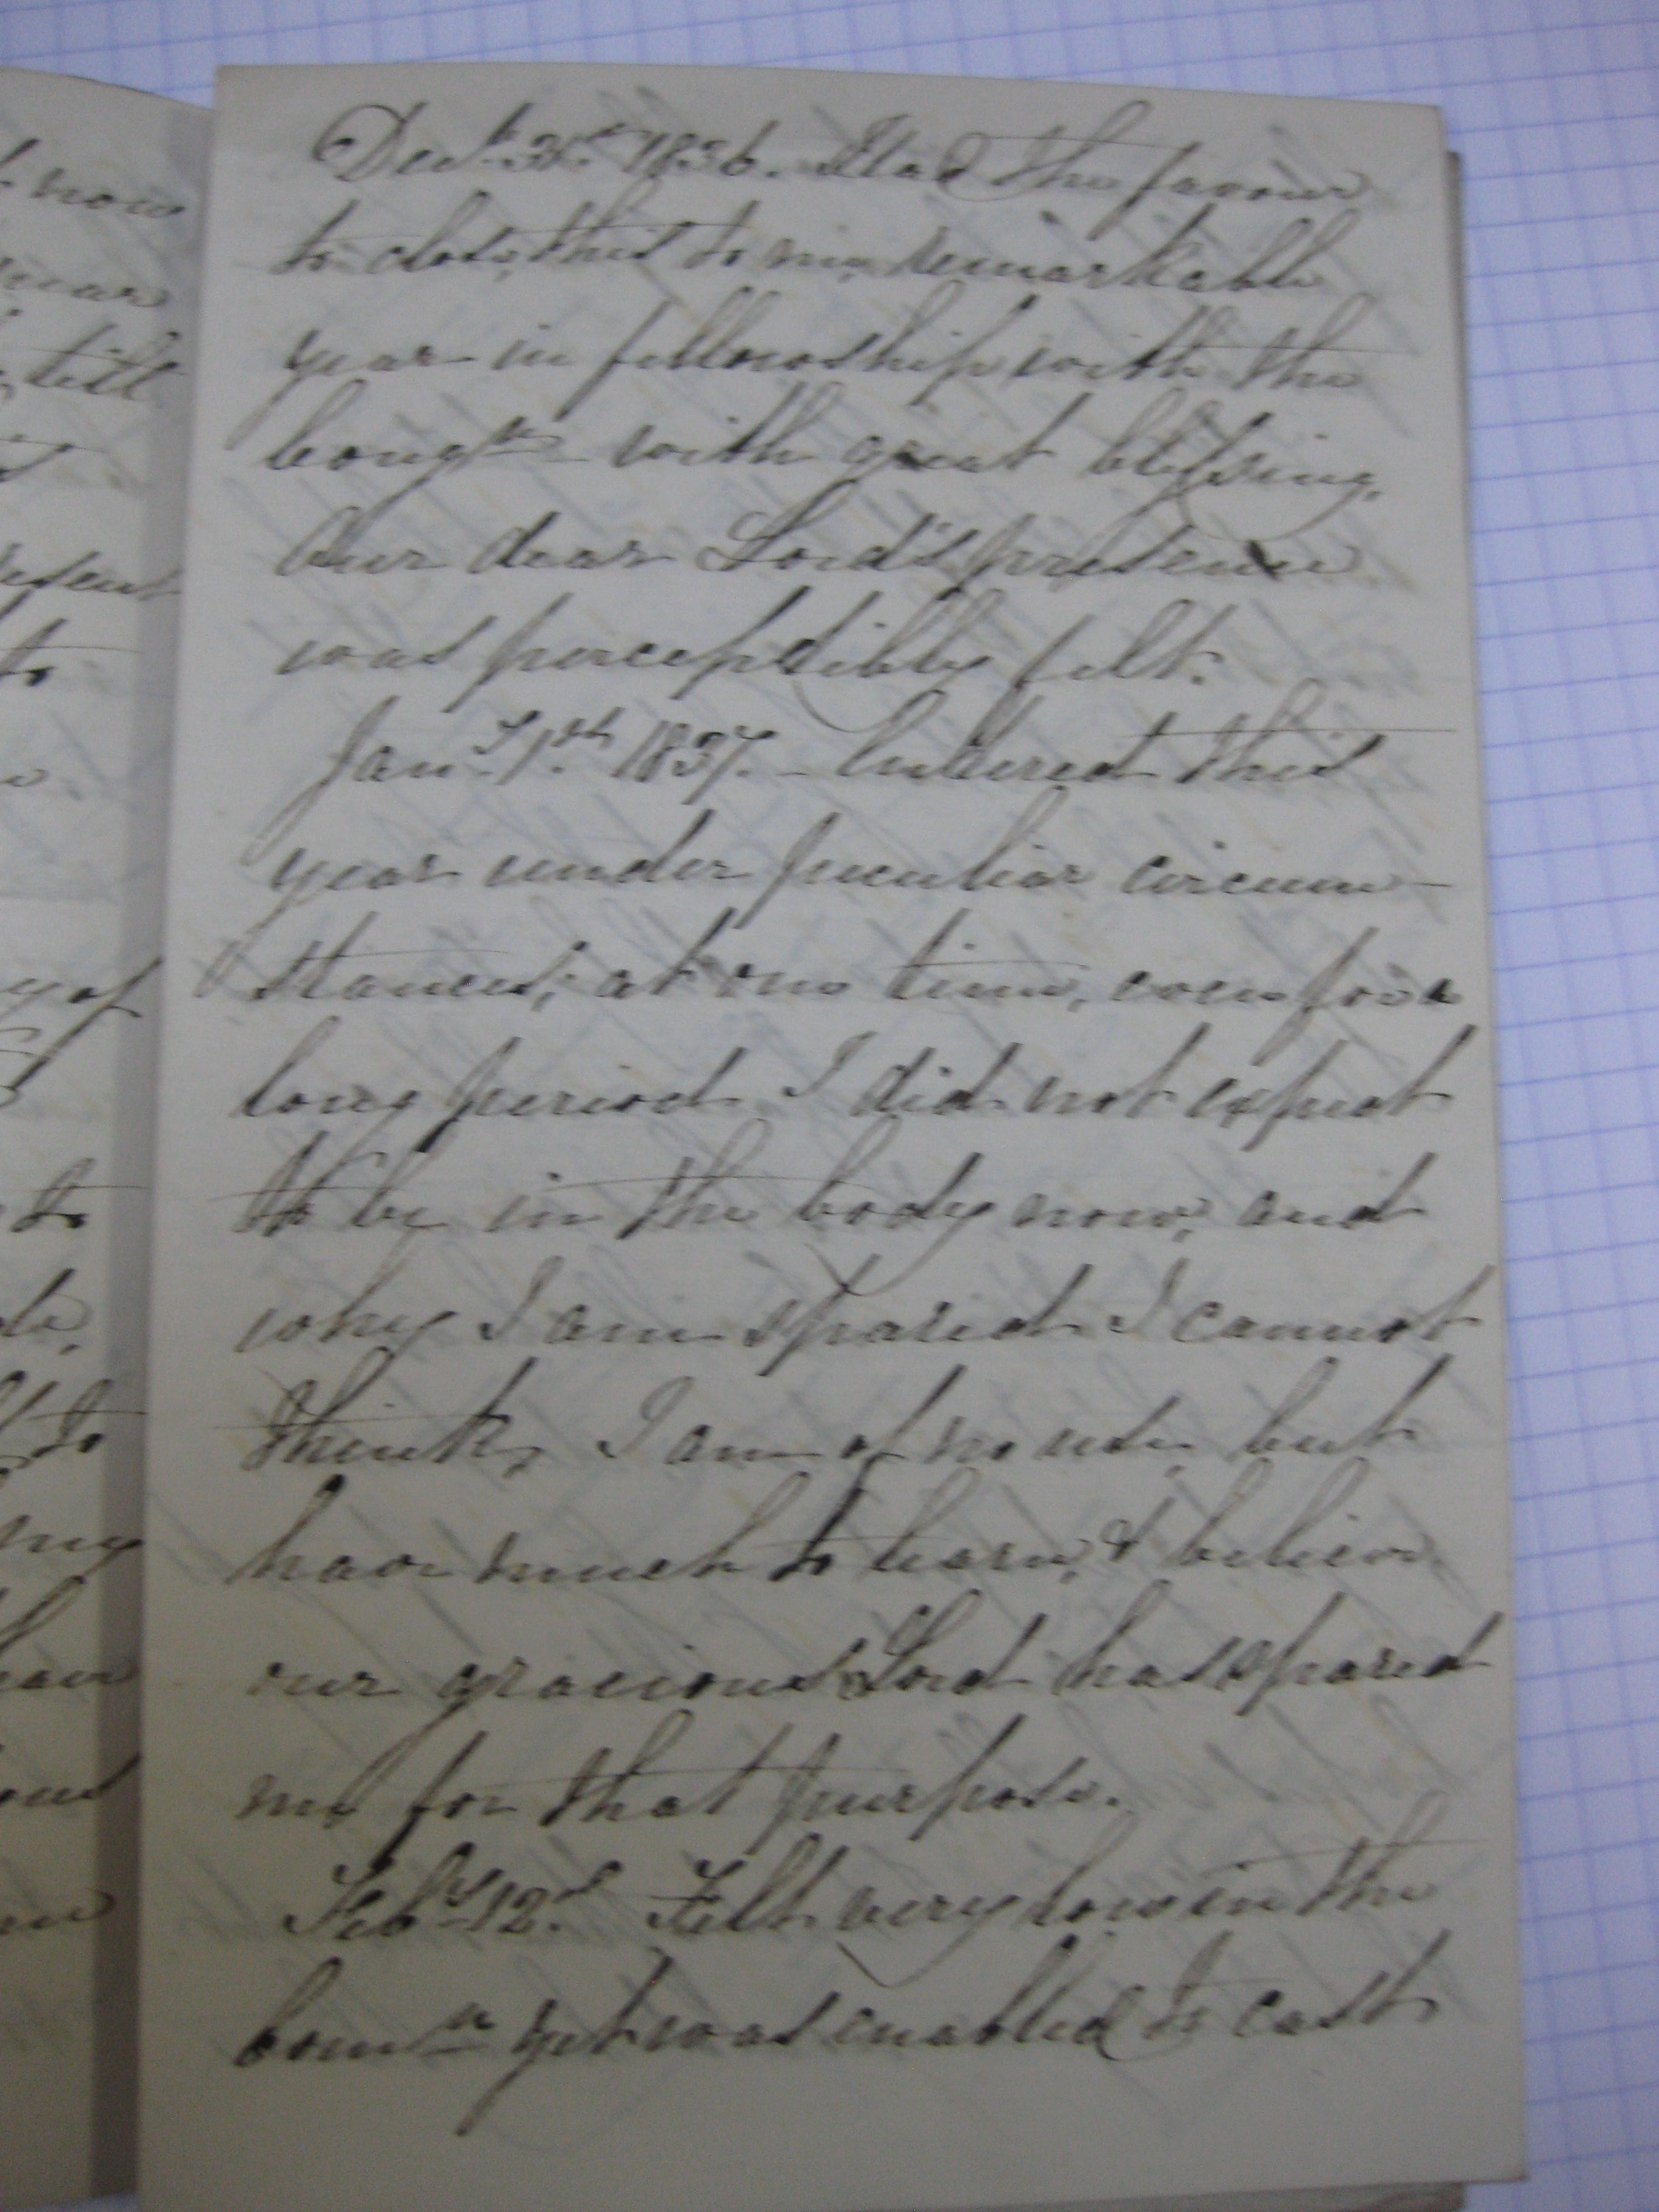 now
till
Decr 31st 1836. Had the favour
to close, this to me, remarkable
year in fellowship with the
Congn with great blessing.
Our dear Lord's presence
was perceptibly felt.
Jany 1st 1837. – Entered this
year under peculiar circum-
stances; at one time, even for a
long period I did not expect
to be in the body now, and
why I am spared I cannot
think, I am of no use, but
have much to learn, & believe
our gracious Lord has spared
me for that purpose.
Feby 12d. Felt very low in the
Comn yet was enabled to cast
of
to
to
my